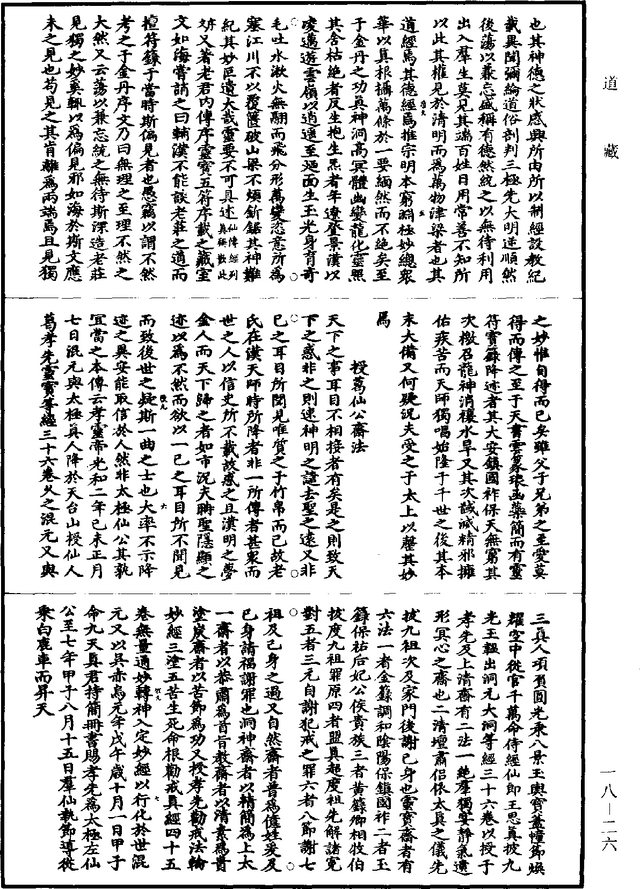 道藏
也其神德之狀感興所由所以制經設教紀
載異聞彌綸道俗剖判三極先大明逆順然
後蕩以兼忘盛稱有德然統之以無待利用
出入羣生莫見其端百姓日用常善不知所
以此其權見於清明而為萬物津梁者也其
道經焉其德經焉推宗明本窮淵極妙總衆
華以真根攜萬條於一要緬然而不絕矣至
于金丹之功真神洞高冥體幽變龍化靈照
其含枯絶者反生抱生炁者年遼登景漢以
凌邁遊雲嶺以逍遙至延面生玉光身有奇
毛吐水漱火無翮而飛分形萬變恣意所為
塞江川不以覆簣破山梁不煩斤鋸其神難
紀其妙叵遺大哉靈要不可具述仙傳經列真稱歎此
跡又著老君內傳序靈寶五符序載之藏室
文如海嘗誚之曰輔漢不能談老莊之道而
擅符籙于當時斯偏見者也愚竊以謂不然
考之于金丹序文乃曰無理之至理不然之
大然又云蕩以兼忘統之無待斯深造老莊
見獨之妙奚輒以為偏見邪如海於斯文應
未之見也苟見之其肯離為兩端焉且見獨
之妙惟自得而已矣雖父子兄弟之至愛莫
得而傳之至于天書雲篆琅函蘂簡而有靈
符寶籙降迹者其大安鎮國祚保天無窮其
次檄召龍神消禳水旱又其次誡誡精邪擁
佑疾苦而天師獨唱始隆于千世之後其本
末大備又何疑況夫受之于太上以罄其妙
焉
授葛仙公齋法
天下之事耳目不相接者有矣是之則致天
下之惑非之則速神明之譴去聖之遠又非
已之耳目所聞見唯質之于竹帛而已故老
氏在漢天師時所降者非一所傳者甚衆而
世之人以信史所不載故惑之且漢明之夢
金人而天下歸之者如市況夫聃聖隱顯之
迹以為不然而欲以一已之耳目所不聞見
而致後世之疑斯一曲之士也大率不示降
迹之異安能取信於人然非太極仙公其孰
宜當之本傳云孝靈帝光和二年己未正月
七日混元與太極真人降於天台山授仙人
葛孝先靈寶等經三十六卷久之混元又與
三真人項負圓光乘八景玉輿寶蓋幢節煥
耀空中從官千萬命侍經仙郎王思真披九
光玉轀出洞元大洞等經三十六卷以授于
孝先及上清齋有二法一絶羣獨宴靜氣遺
形冥心之齋也二清壇肅侶依太真之儀先
拔九祖次及家門後謝己身也靈寶齋者有
六法一者金籙調和陰陽保鎮國祚二者玉
籙保祐后妃公侯貴族三者黃籙卿相牧伯
拔度九祖罪原四者盟真超度祖先解諸冤
對五者三元自謝犯戒之罪六者八節謝七
祖及己身之過又自然齋者普為億姓爰及
己身請福謝罪也洞神齋者以精簡為上太
一齋者以恭肅為首旨教齋者以清素為貴
塗炭齋者以苦節為功又授孝先勸戒法輪
妙經三塗五苦生死命根勸戒真經四十五
卷無量通妙轉神入定妙經以行化於世混
元又以吳赤烏元年戊午歲十月一日甲子
命九天真君持簡冊書賜孝先為太極左仙
公至七年甲子八月十五日羣仙執節導從
乘白鹿車而昇天
一八—二六